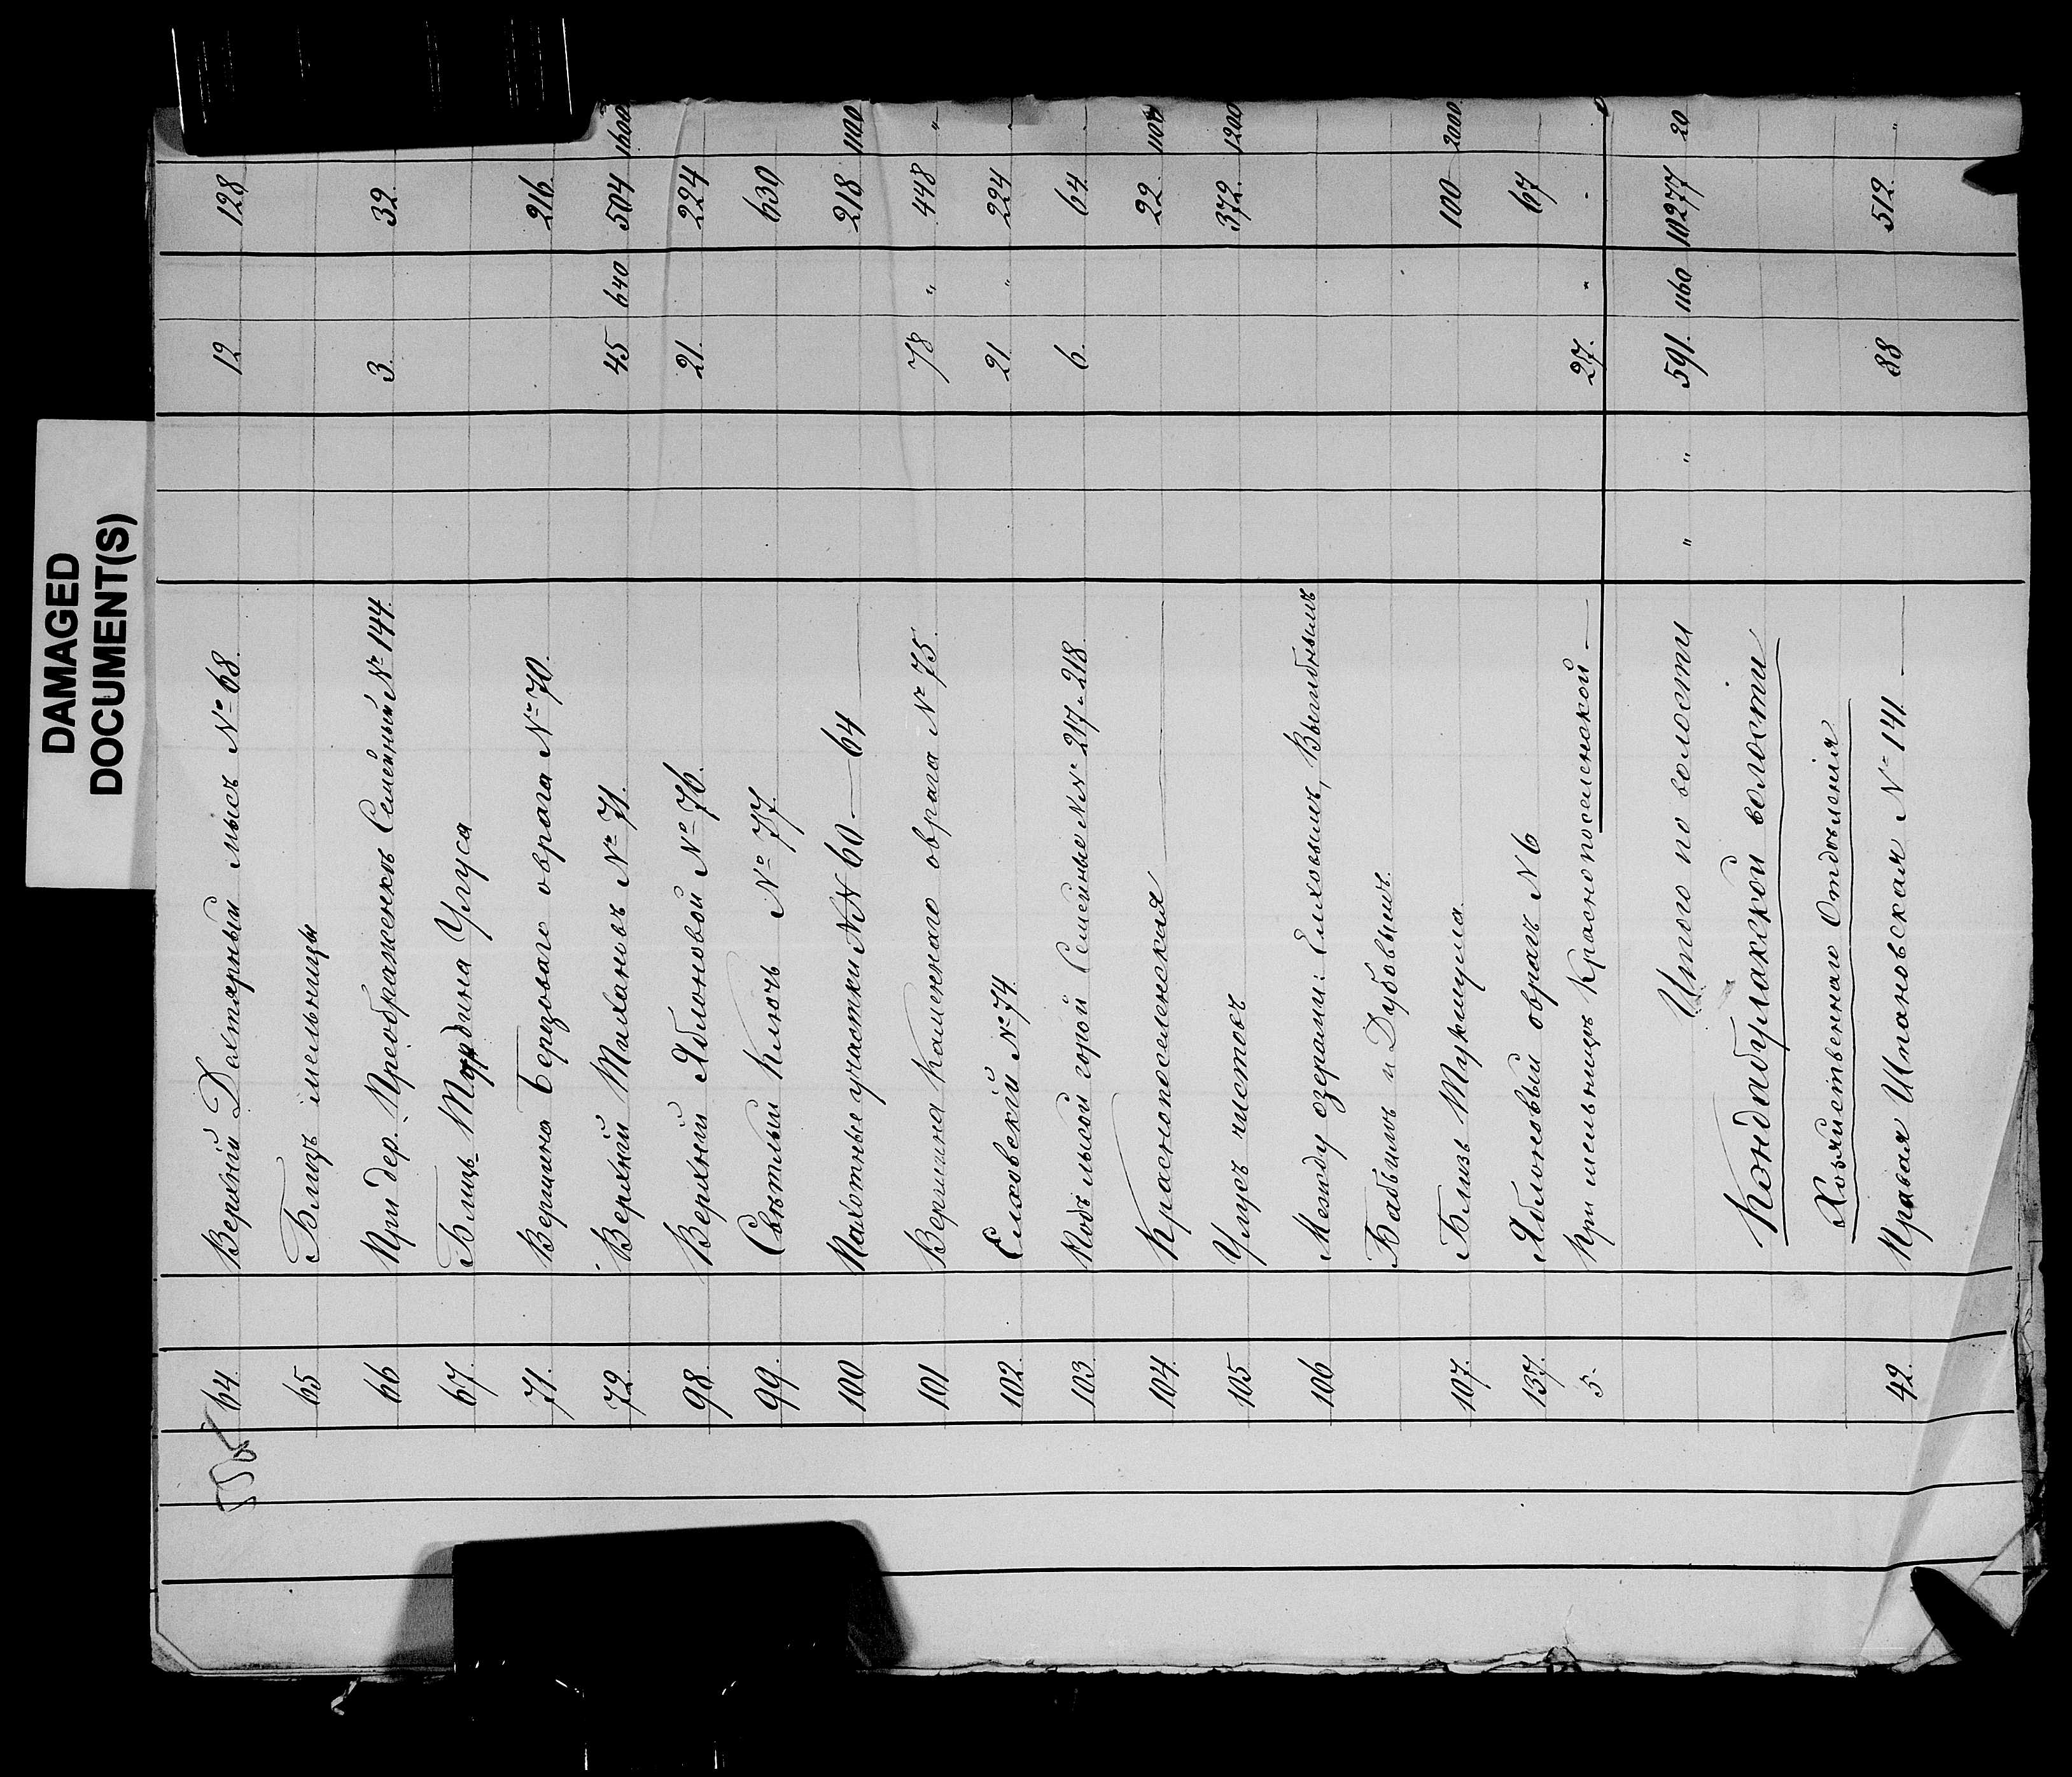 DAMAGED
DOCUMENT(S)
64. Верхній Дехтярный мысъ № 68. 12 128
65 Близъ мельницы
66 При дер. Преображенкѣ Семейный № 144 3. 32.
67. Близь Мордвина Улуса
71. Вершина Березоваго оврага № 70. 216
72. Верхній Маханов № 71. 45 640 504 1600
98. Верхній Яблоновой № 76. 21. 224
99. Свѣтлый Ключь № 77. 630
100 Пахотные участки №№ 60 — 64 218 1100
101 Вершина Каменнаго оврага № 75. 78 " 448 "
102. Елховскій № 74. 21 " 224 "
103. Подъ лысой горой Семейные №№ 217 - 218. 6. 64. "
104. Краснопоселенская 22. 1100
105 Улусъ чистовъ 372. 1200
106 Между озерами: Елховымъ, Выгибнымъ
Бабьимъ и Дубовымъ.
107. Близь 100 2000.
137. Яблоновый оврагъ № 6 67
5. При мельницѣ Краснопоселенской — 27. " -
Итого по волости " " 591. 1160 10277 20
Кондабулакской волости
Хозяйственнаго Отдѣленія
42. Правая Ипановская № 141. — 88 512. "